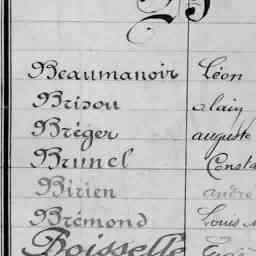 B
Beaumanoir Léon
Brisou Alain
Bréger auguste
Brunel Consta
Birien andré
Brémond Louis
Boisselle